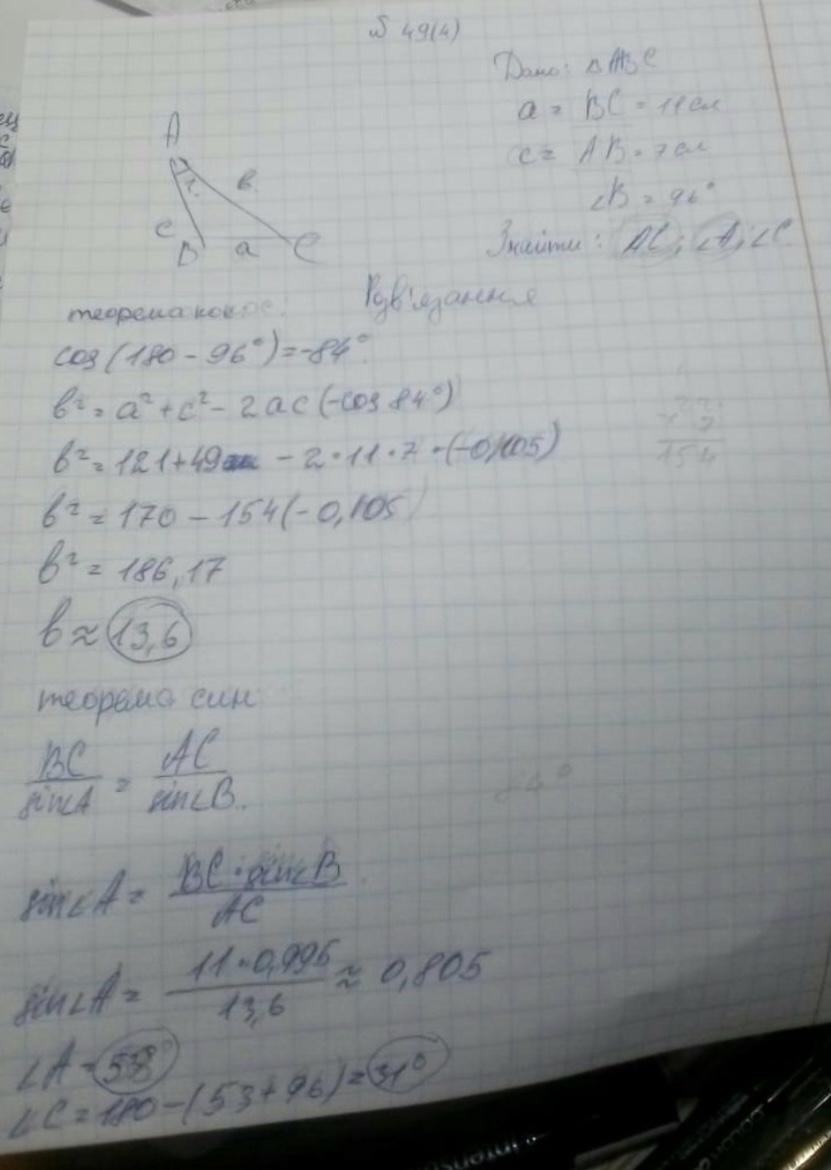 № 49(4)
Дано: △ABC
a = BC = 11 см
c = AB = 7 см
∠B = 96°
Знайти: AC; ∠A; ∠C
A
в
c
B a C
Розв'язання
теорема
cos(180 - 96°) = -84°
в² = a² + c² - 2ac(-cos 84°)
в² = 121 + 49 - 2·11·7·(-0,105)
в² = 170 - 154(-0,105)
в² = 186,17
в ≈ 13,6
теорема син
BC/sin∠A = AC/sin∠B
sin∠A = BC·sin∠B/AC
sin∠A = 11·0,995/13,6 ≈ 0,805
∠A = 53°
∠C = 180 - (53 + 96) = 31°
154